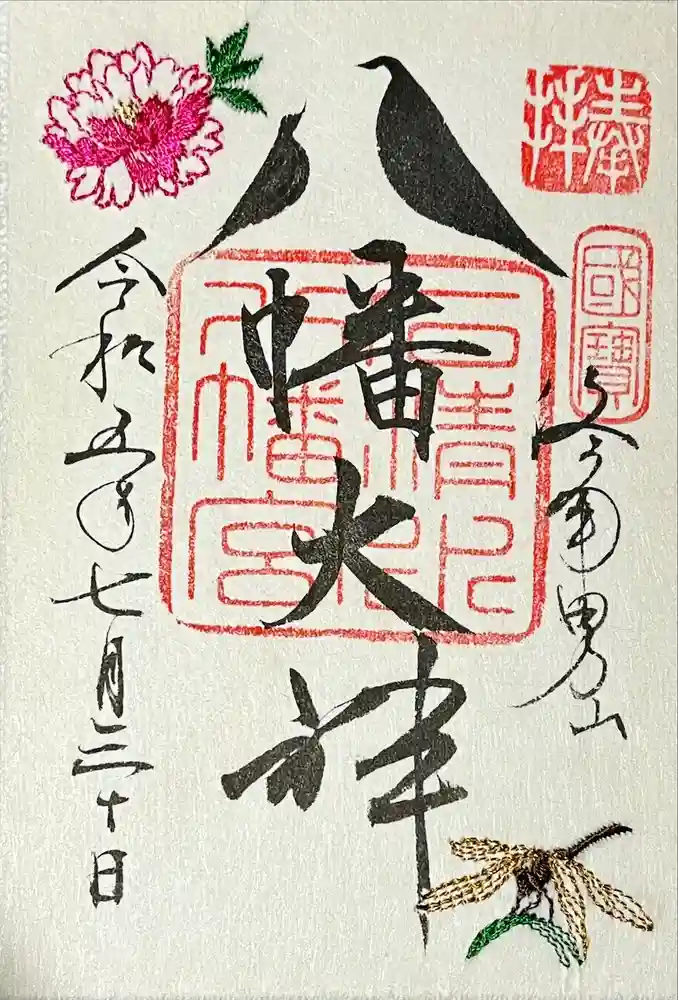 奉拝
國寶
南男山
八幡大神
石清水八幡宮
令和五年七月三十日